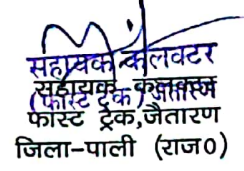 सहायक कलक्टर
(फास्ट ट्रेक) जैतारण
सहायक कलक्टर
फास्ट ट्रेक,जैतारण
जिला-पाली (राज०)